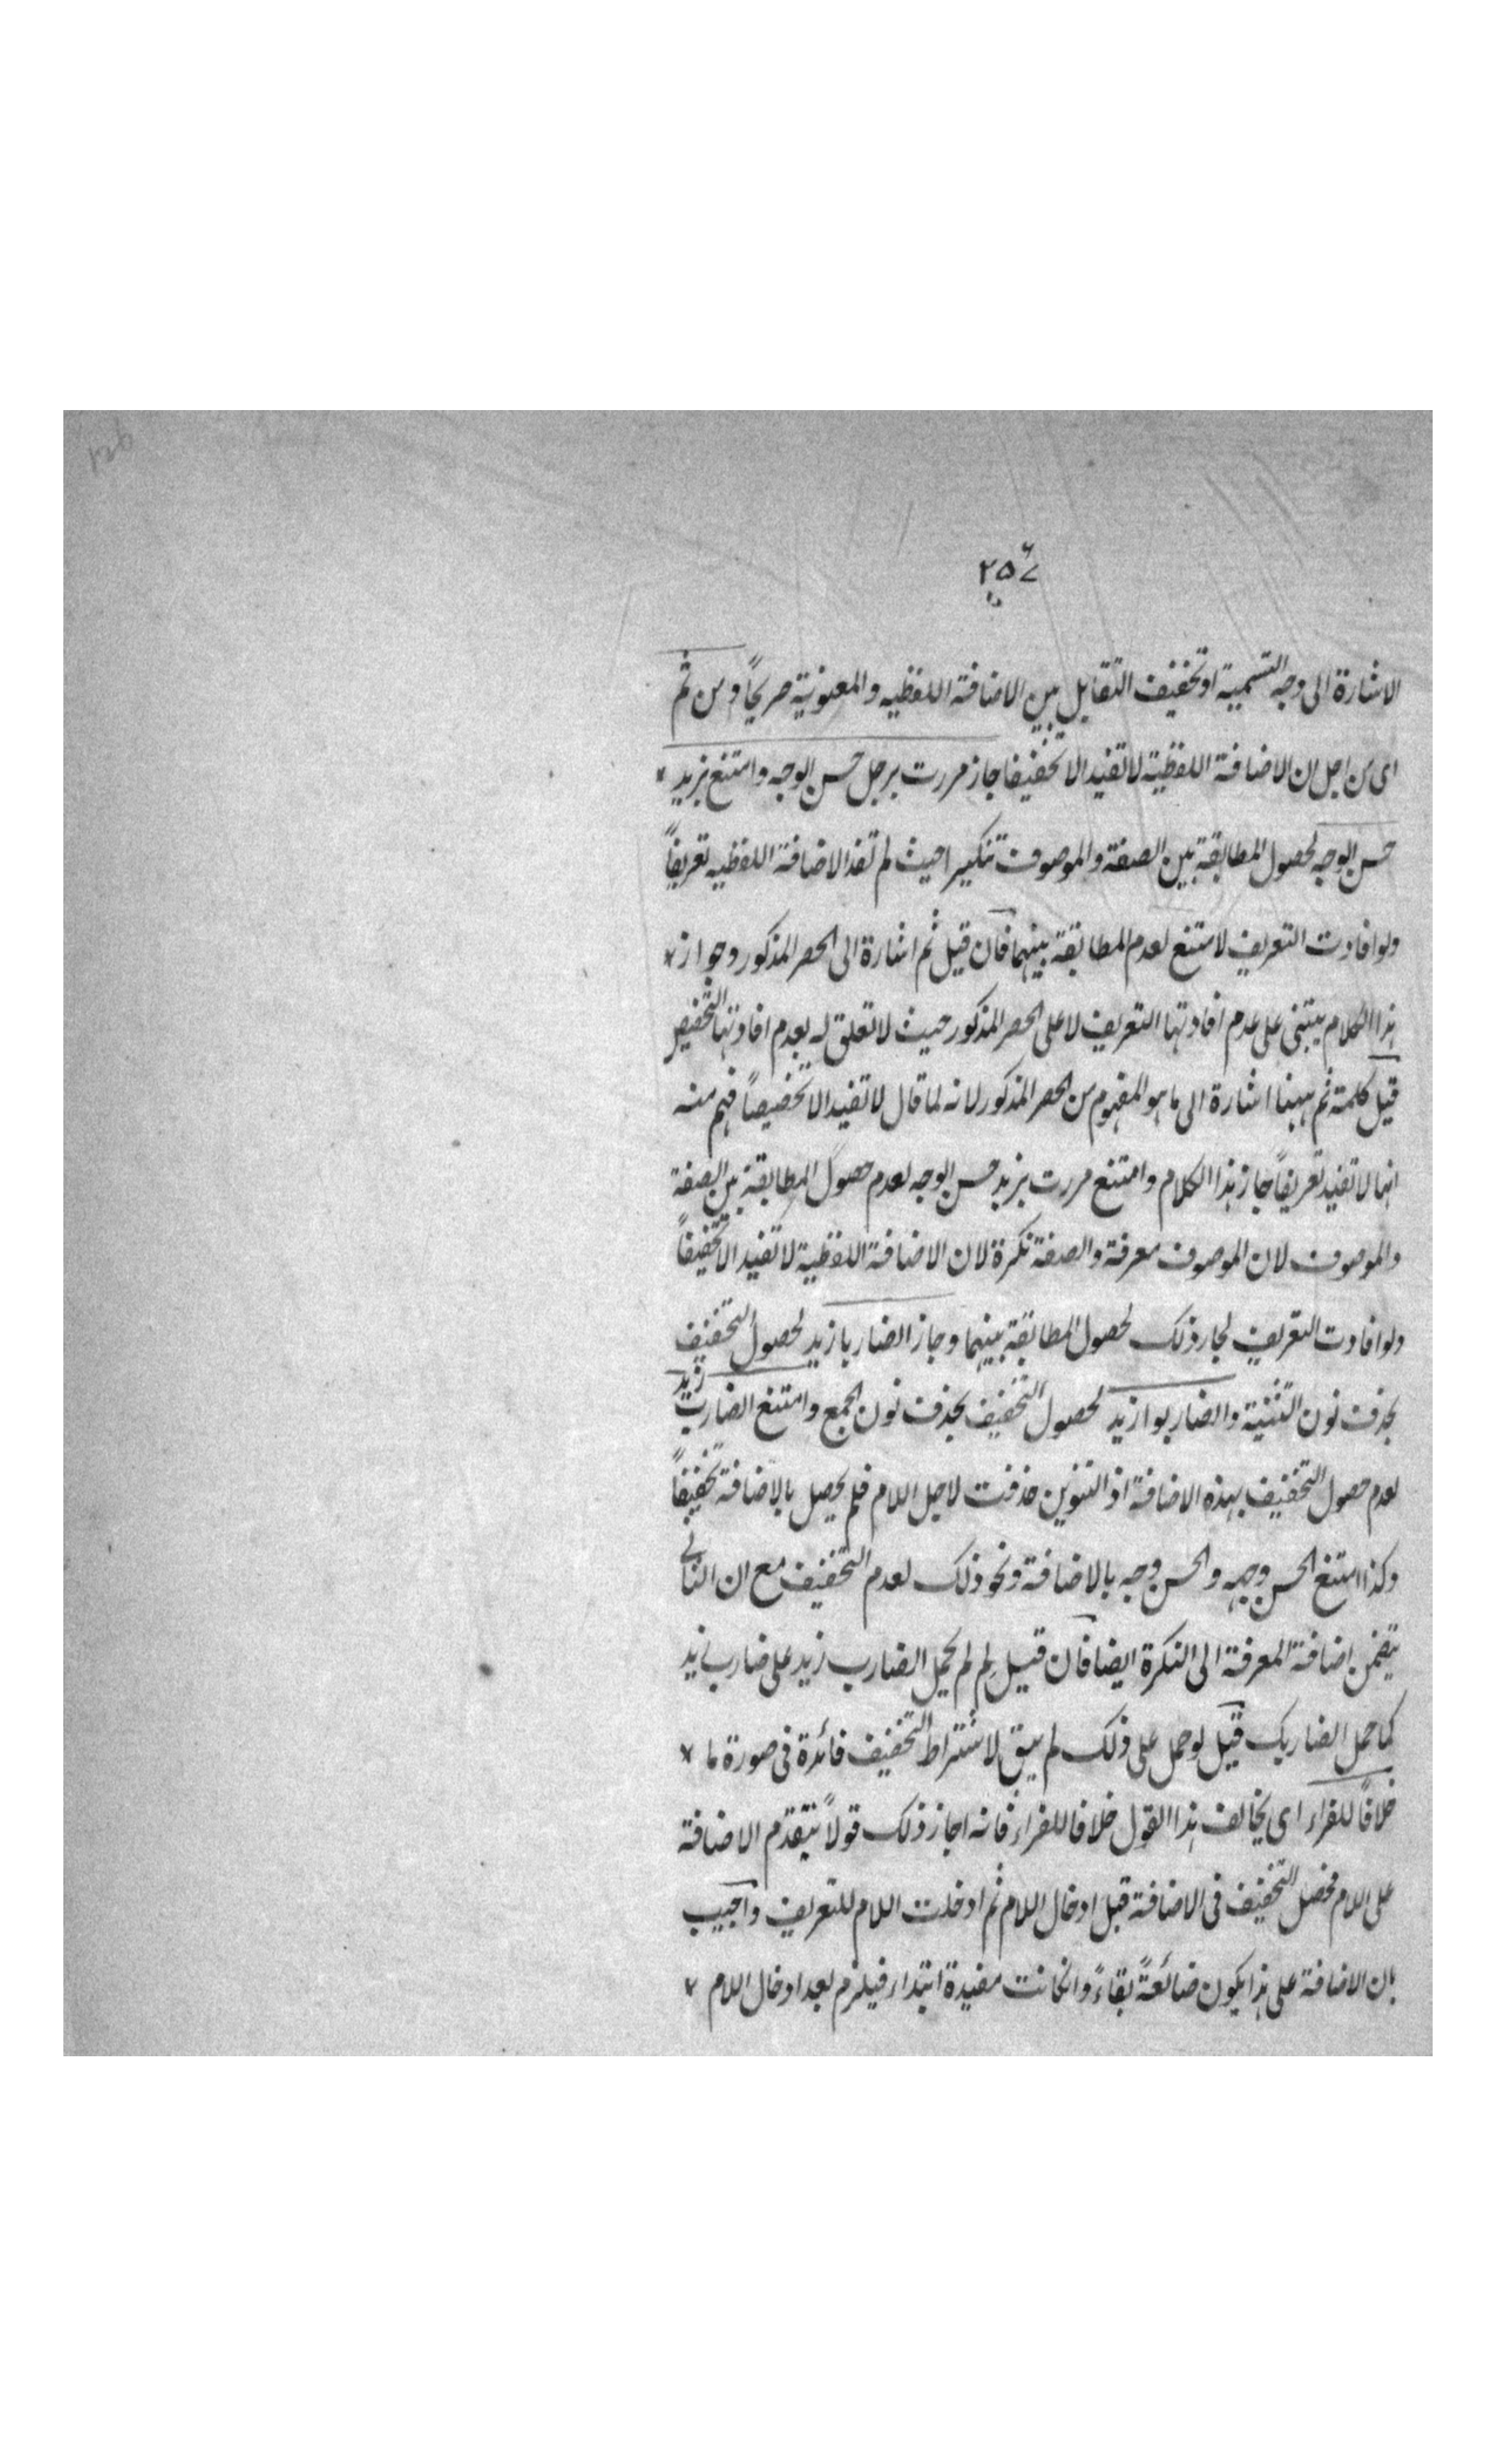 ٢٥٤
الاشارة الى وجه التسمية او تخفيف التقابل بين الاضافة اللفظيه والمعنوية صريحًا ومن ثم
اى من اجل ان الاضافة اللفظية لا تفيد الا تخفيفا جاز مررت برجل حسن الوجه وامتنع بزيد
حسن الوجه لحصول المطابقة بين الصفة والموصوف تنكيرا حيث لم تفد الاضافة اللفظيه تعريفاً
ولو افادت التعريف لامتنع لعدم المطابقة بينهما فان قيل ثم اشارة الى الحصر المذكور وجواز
هذا الكلام يبتنى على عدم افادتها التعريف لا على الحصر المذكور حيث لا تعلق له بعدم افادتها التخصيص
قيل كلمة ثم ههنا اشارة الى ما هو المفهوم من الحصر المذكور لانه لما قال لا تفيد الا تخصيصاً فهم منه
انها لا تفيد تعريفاً جاز هذا الكلام وامتنع مررت بزيد حسن الوجه لعدم حصول المطابقة بين الصفة
والموصوف لان الموصوف معرفة والصفة نكرة لان الاضافة اللفظية لا تفيد الا تخفيفاً
ولو افادت التعريف لجاز ذلك لحصول المطابقة بينهما وجاز الضاربا زيد لحصول التخفيف
بحذف نون التثنية والضاربوا زيد لحصول التخفيف بحذف نون الجمع وامتنع الضارب زيد
لعدم حصول التخفيف بهذه الاضافة اذ التنوين حذفت لاجل اللام فلم يحصل بالاضافة تخفيفاً
وكذا امتنع الحسن وجهه والحسن وجه بالاضافة ونحو ذلك لعدم التخفيف مع ان الثانى
يتضمن اضافة المعرفة الى النكرة ايضا فان قيل لِم لم يحمل الضارب زيد على ضارب زيد
كما حمل الضاربك قيل لو حمل على ذلك لم يبق لاشتراط التخفيف فائدة فى صورة ما
خلافاً للفراء اى يخالف هذا القول خلافا للفراء فانه اجاز ذلك قولاً بتقدم الاضافة
على اللام فحصل التخفيف فى الاضافة قبل ادخال اللام ثم ادخلت اللام للتعريف واجيب
بان الاضافة على هذا يكون ضائعةً بقاءً وانكانت مفيدة ابتداء فيلزم بعد ادخال اللام